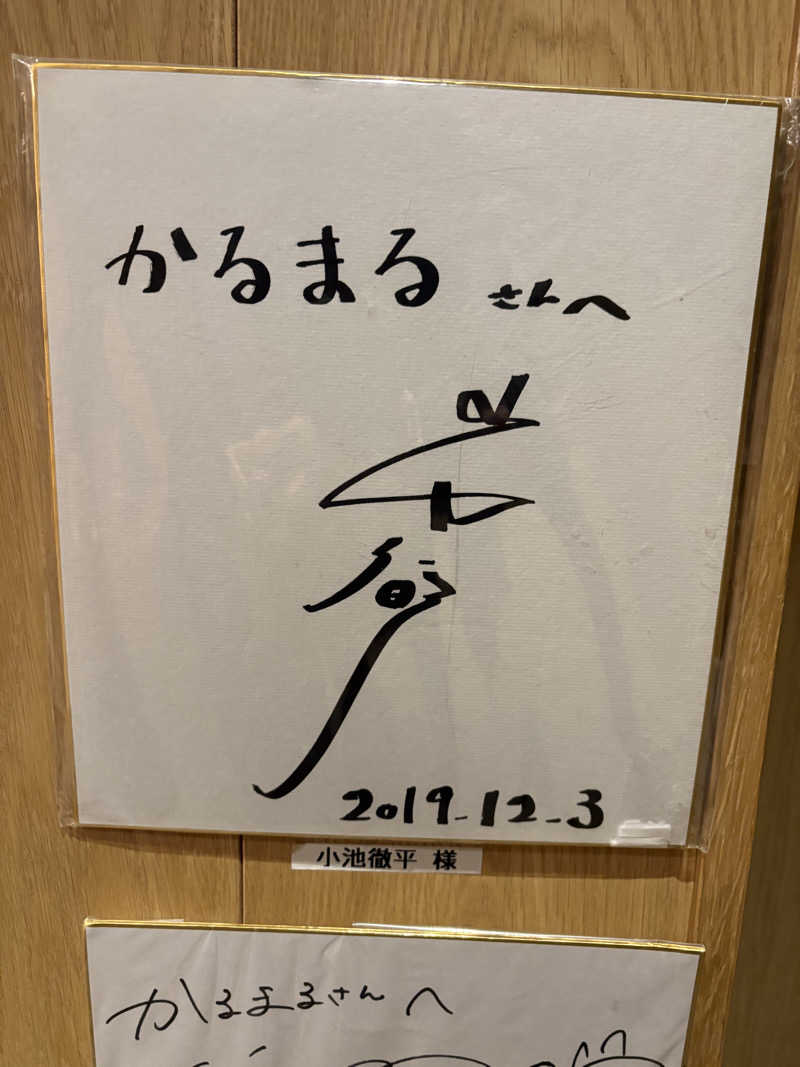 かるまる さんへ
2019-12-3
小池徹平 様
かるまるさんへ